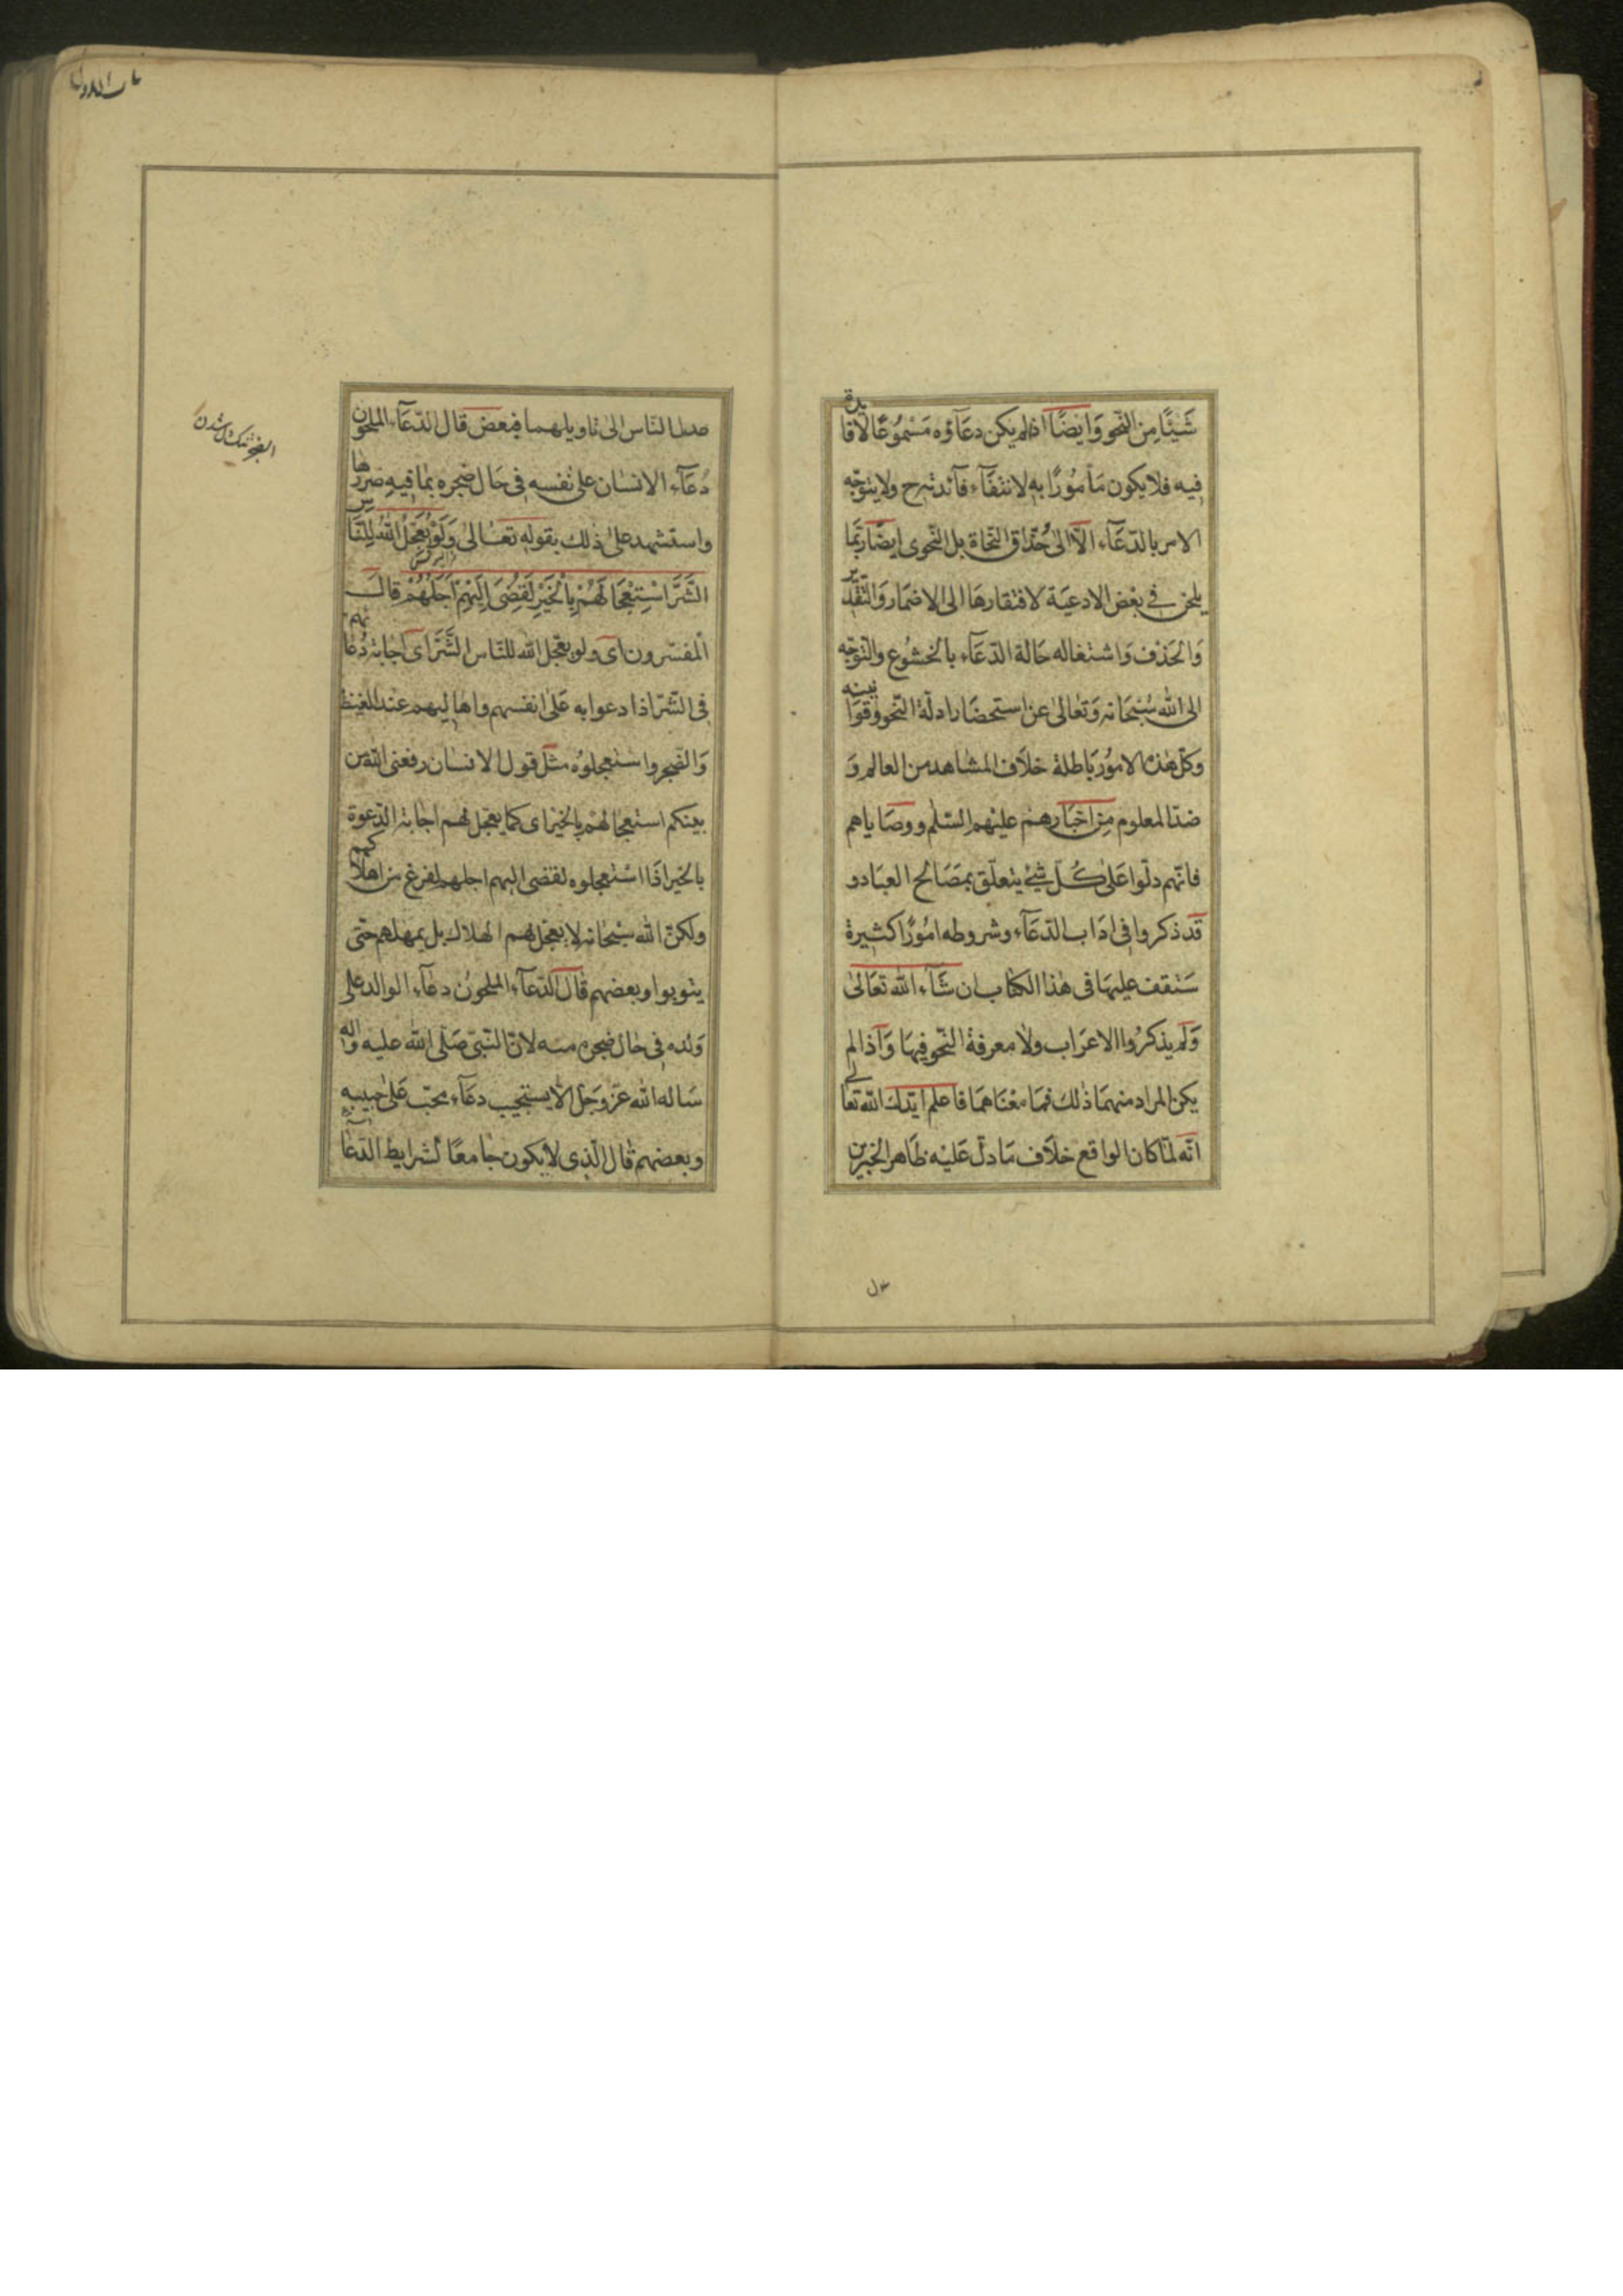 شَيْئًا مِنَ النّحو وَايضًا اذا لم يكن دعَآؤه مَسْمُوعًا لا فائدة
فيه فلا يكون مَأمُورًا به لانتفَآء فآئدته ح ولا يتوجّه
الامر بالدّعَآء الّا الى حُذّاق النّحاة بل النّحوى ايضًا ربّما
يلحن فى بعْض الادعيَة لافتقارهَا الى الاضمَار وَالتّقدير
وَالحَذف وَاشتغاله حَالة الدّعَآء بالخشُوع والتّوجّه
الى الله سُبْحَانه وَتعَالى عن استحضَار ادلّة النّحو وقوَانينه
وكلّ هٰذه الامُور بَاطلة خلاف المشاهد من العالم وَ
ضدّ المعلوم مِن اخبَارهم عليْهم السّلم ووصَاياهم
فانّهم دلّوا عَلى كُلّ شئ يتعلّق بمصَالح العبَاد و
قد ذكروا فى ادَاب الدّعَآء وشروطه امُورًا كثيرة
سَنقف عليهَا فى هٰذا الكتاب ان شَآء الله تعَالىٰ
وَلم يذكرُوا الاعرَاب ولا معرفة النّحو فيهَا وَاذا لم
يكن المراد منهمَا ذٰلك فمَا معْنَاهمَا فاعلم ايّدك الله تعَالى
انّه لمّا كان الواقع خلاف مَا دلّ عَليْه ظَاهر الخبرين
عدل
عدل النّاس الى تاويلهما فبعض قال الدّعَآء الملحون
دُعَآء الانسَان على نفسه فى حَال ضجره بمٰا فيهِ ضررها
واستشهد علىٰ ذلك بقوله تعَالىٰ وَلَوْ يُعَجِّلُ اللهُ لِلنَّاسِ
الشَّرَّ اسْتِعْجَالَهُمْ بِالْخَيْرِ لَقُضِىَ اِلَيْهِمْ اَجَلُهُمْ قالَ
المفسّرون اى ولو يعجّل الله للنّاس الشَّرَّ اى اجَابة دُعائهم
فى الشّرّ اذا دعوا به عَلىٰ انفسهم واهاليهم عند الغيظ
وَالضّجر واستعجلوُه مثل قول الانسَان رفعنى الله من
بينكم استعجالهُم بالخيْر اى كمَا يعجّل لهم اجَابة الدّعوة
بالخَير اذَا استعجلوه لقضى اليهم اجلهم لفرغ من اهلاكهم
ولكنّ الله سُبْحَانه لا يعجّل لهم الهلاك بل يمهلهم حتّى
يتوبوا وبعضهم قال الدّعآء الملحُون دعَآء الوالد على
وَلده فى حَال ضجره منه لانّ النّبىّ صَلّى الله عليه وآله
سَاله الله عزّ وَجَلّ الّا يستجيب دعَآء محبّ عَلىٰ حبيبه
وبعضهم قال الّذى لا يكون جَامعًا لشرايط الدّعَا